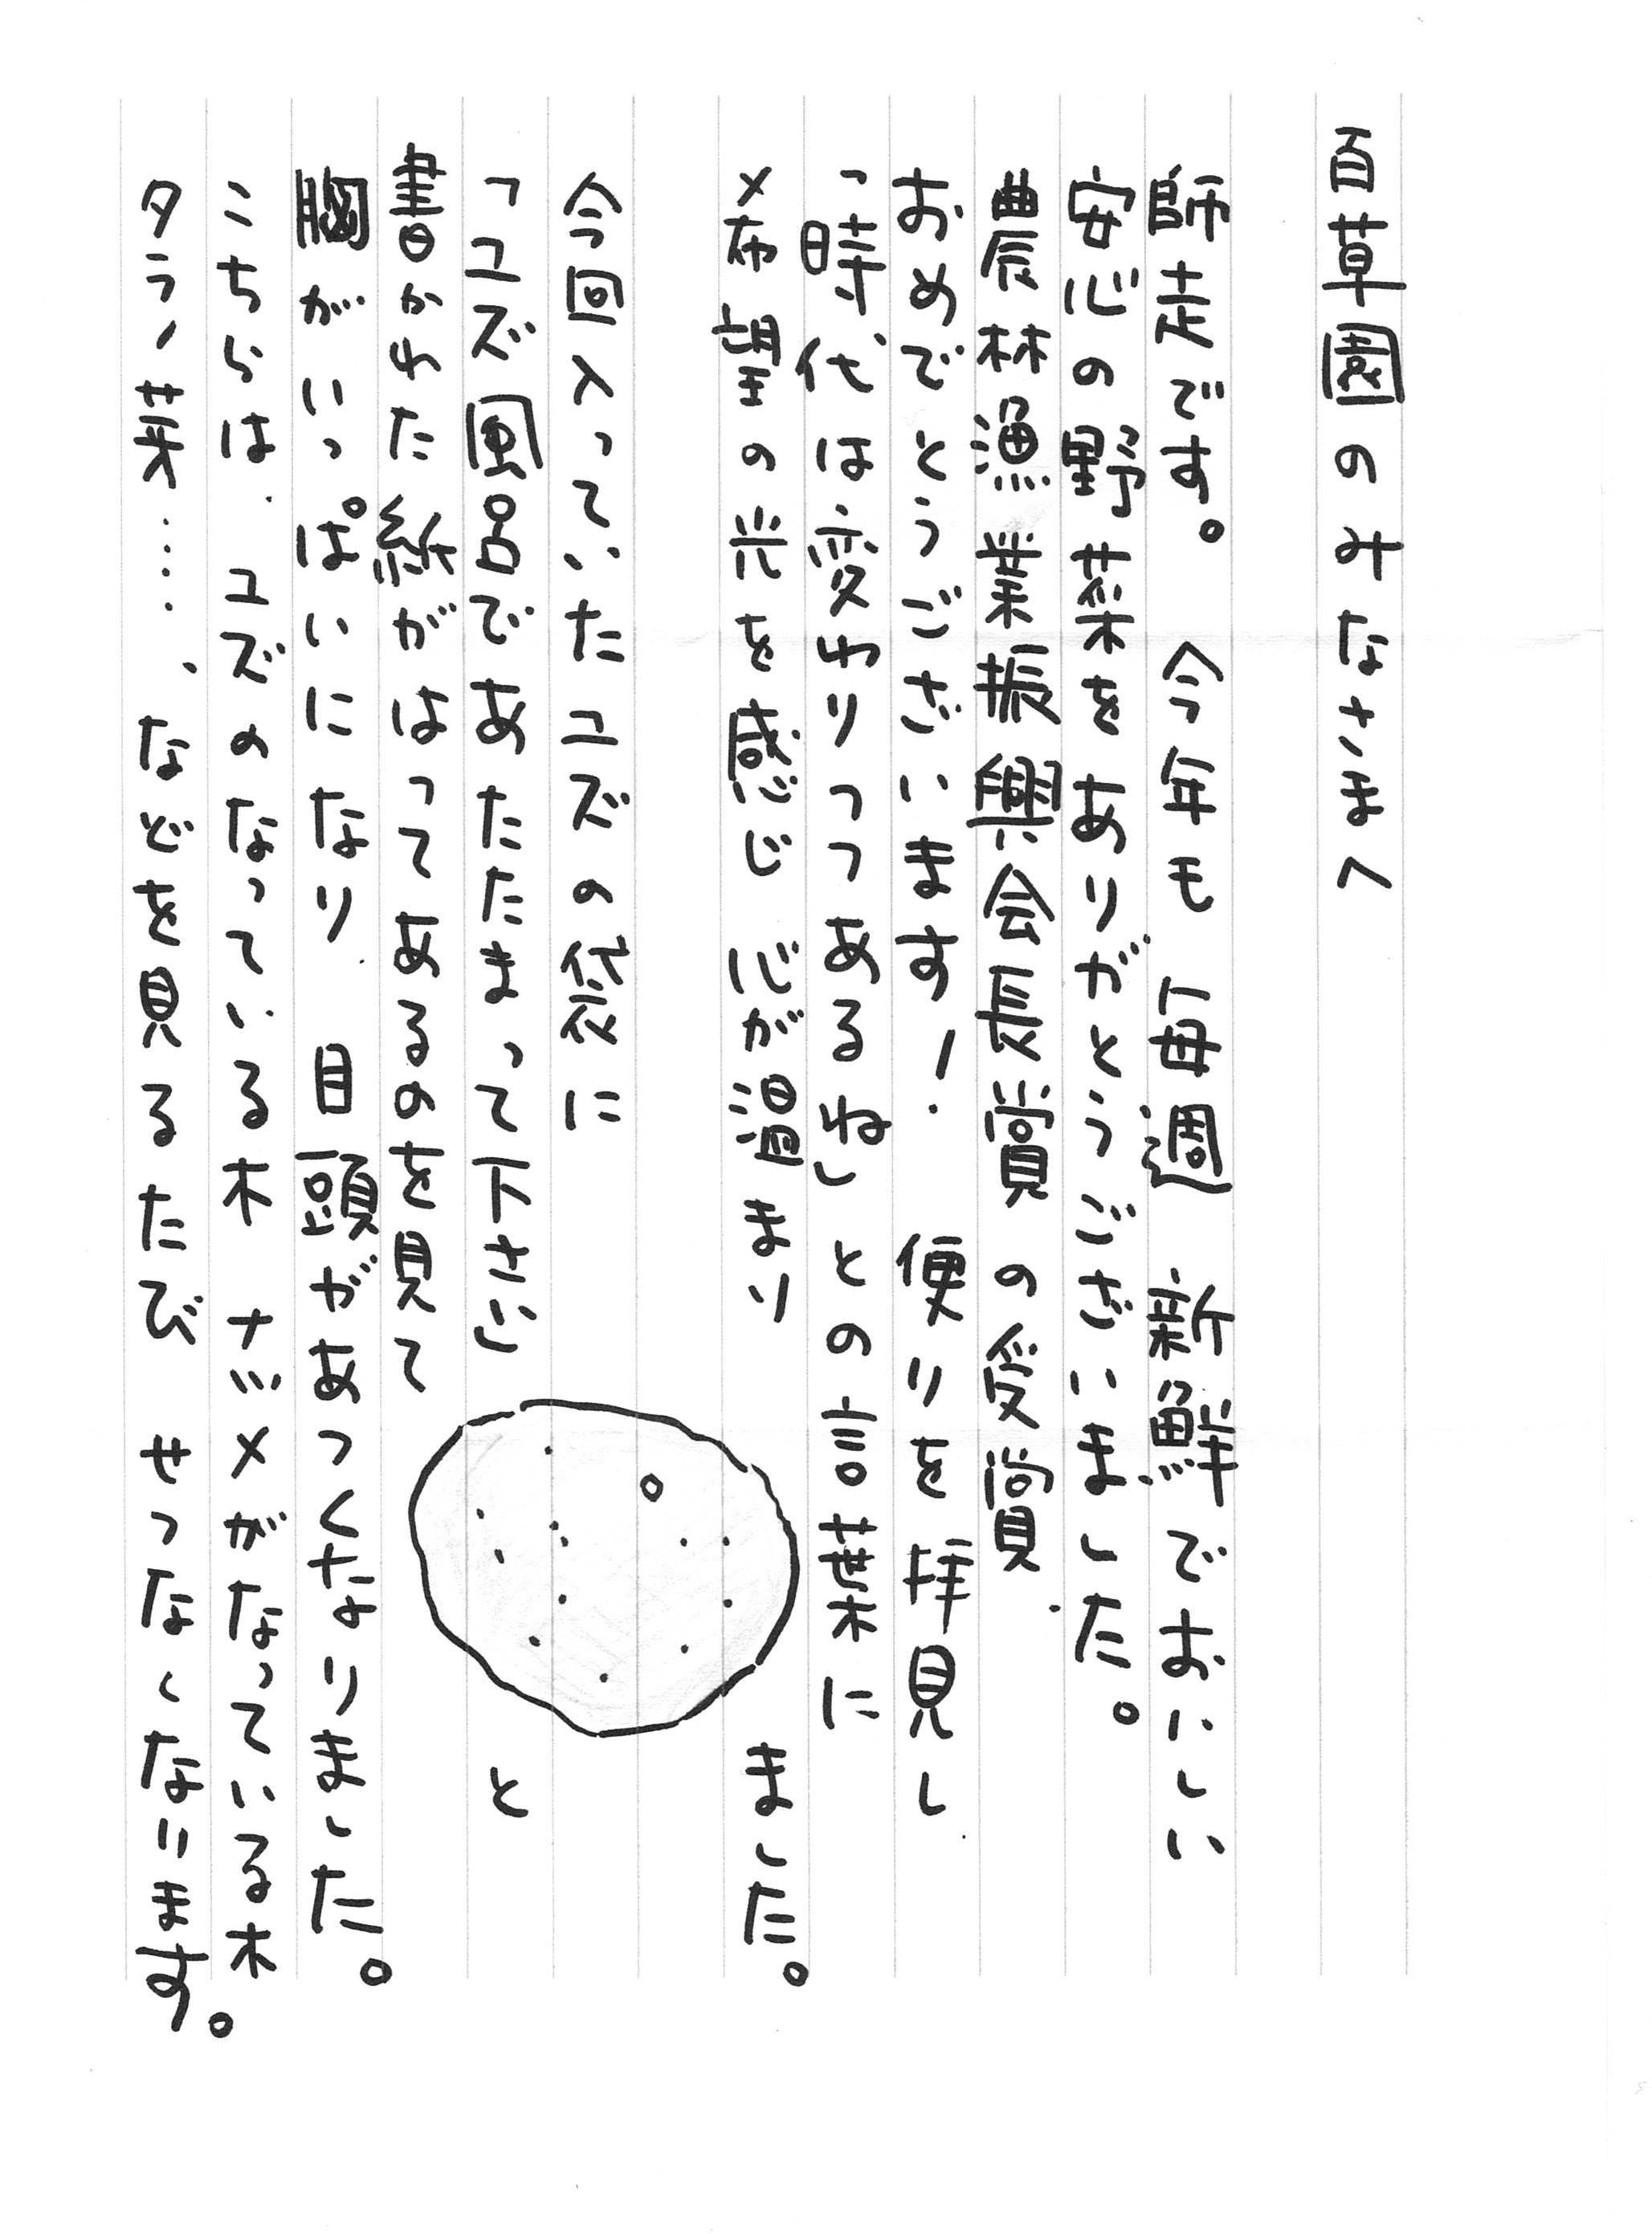 百草園のみなさまへ
師走です。 今年も 毎週 新鮮でおいしい
安心の野菜をありがとうございました。
農林漁業振興会長賞の受賞
おめでとうございます！ 便りを拝見し
「時代は変わりつつあるね」との言葉に
希望の光を感じ 心が温まりました。
今回入っていたユズの袋に
「ユズ風呂であたたまって下さい」と
書かれた紙がはってあるのを見て
胸がいっぱいになり 目頭があつくなりました。
こちらは、ユズのなっている木 ナツメがなっている木
タラノ芽……、などを見るたび せつなくなります。